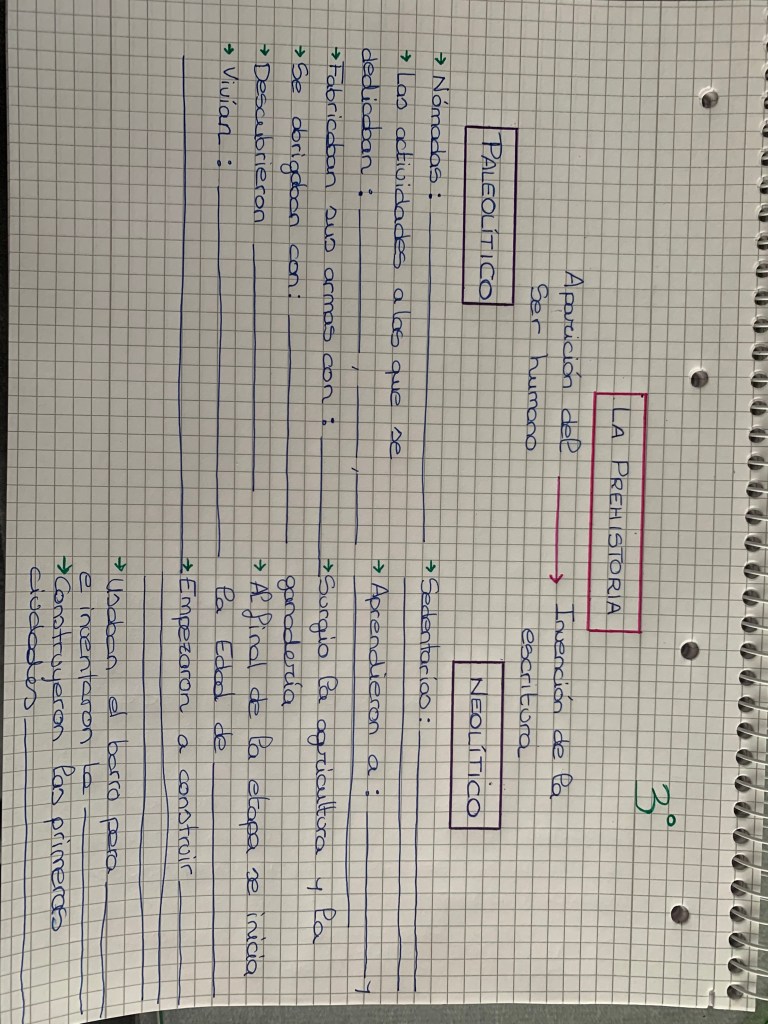 3º
LA PREHISTORIA
Aparición del → Invención de la
Ser humano escritura
PALEOLÍTICO
→ Nómadas:
→ Las actividades a las que se
dedicaban: , ,
→ Fabricaban sus armas con:
→ Se abrigaban con:
→ Descubrieron
→ Vivían:
NEOLÍTICO
→ Sedentarios:
→ Aprendieron a: y
→ Surgio la agricultura y la
ganadería
→ Al final de la etapa se inicia
la Edad de
→ Empezaron a construir
→ Usaban el barro para
e inventaron la
→ Construyeron las primeras
ciudades